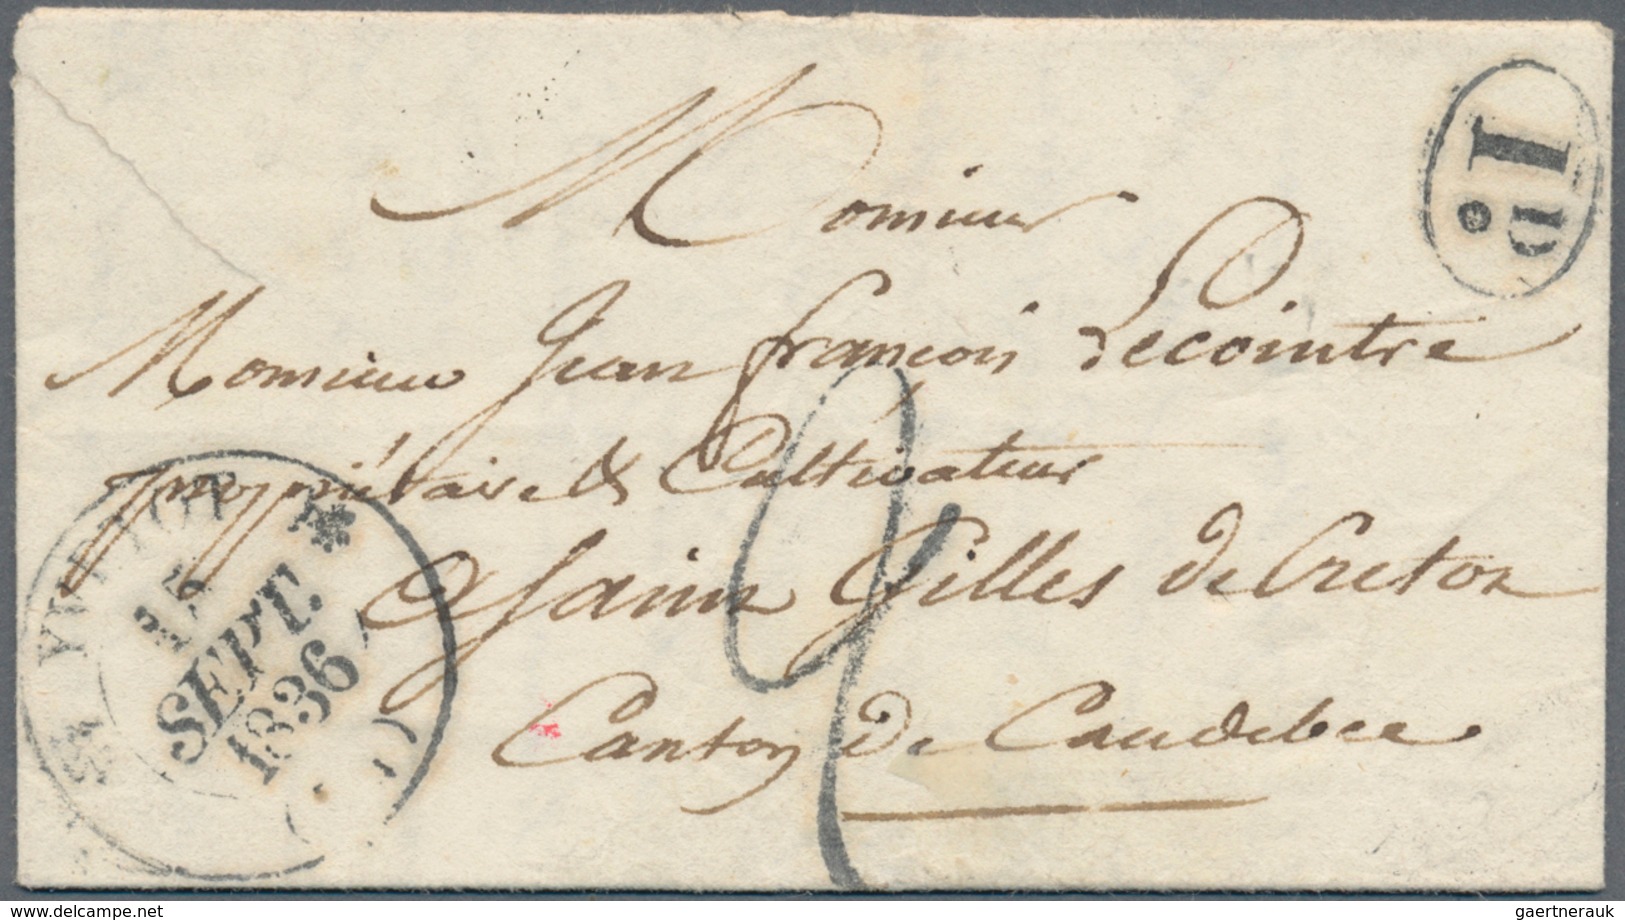 Monsieur
Monsieur Jean françois Lecointre
propriétaire & Cultivateur
Saint Gilles de Cretot
Canton de Caudebec
15
SEPT.
1836
1D
2
gaertnerauk
delcampe.net